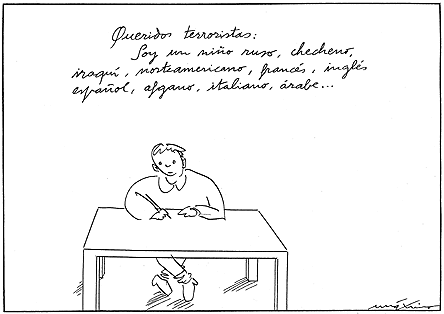 Queridos terroristas:
Soy un niño ruso, checheno,
iraquí, norteamericano, francés, inglés
español, afgano, italiano, árabe...
máximo